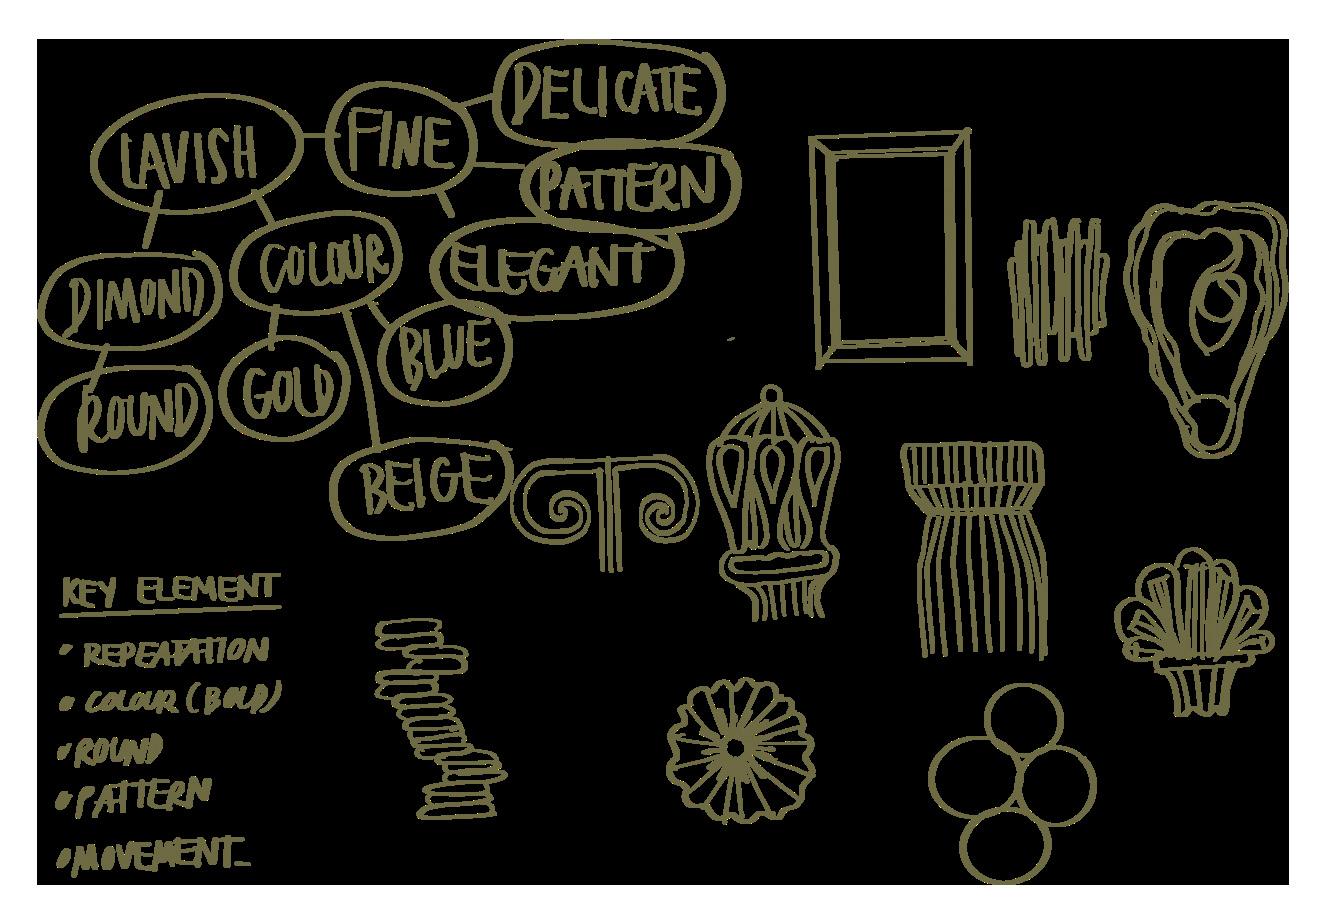 DELICATE
LAVISH
FINE
PATTERN
COLOUR
ELEGANT
DIMOND
BLUE
ROUND
GOLD
BEIGE
KEY ELEMENT
• REPEATATION
• COLOUR (BOLD)
• ROUND
• PATTERN
• MOVEMENT